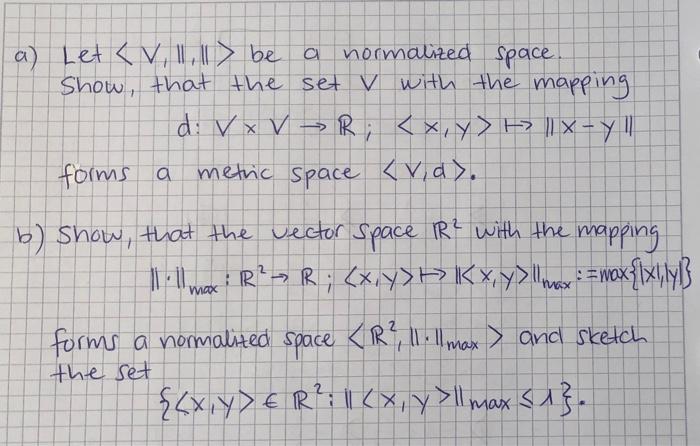 a) Let < V, ||.|| > be a normalized space.
Show, that the set V with the mapping
d: V × V → ℝ; <x,y> ↦ ||x-y||
forms a metric space <V,d>.
b) Show, that the vector space ℝ² with the mapping
||·||max : ℝ² → ℝ; <x,y> ↦ ||<x,y>||max := max{|x|,|y|}
forms a normalized space <ℝ², ||·||max > and sketch
the set
{<x,y> ∈ ℝ²: ||<x,y>||max ≤ 1}.